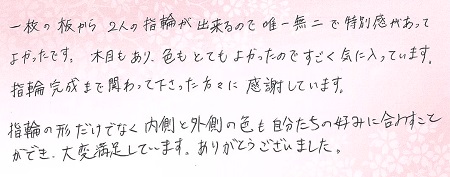 一枚の板から2人の指輪が出来るので唯一無二で特別感があって
よかったです。木目もあり、色もとてもよかったのですごく気に入っています。
指輪完成まで関わって下さった方々に感謝しています。
指輪の形だけでなく内側と外側の色も自分たちの好みに合わすこと
ができ、大変満足しています。ありがとうございました。